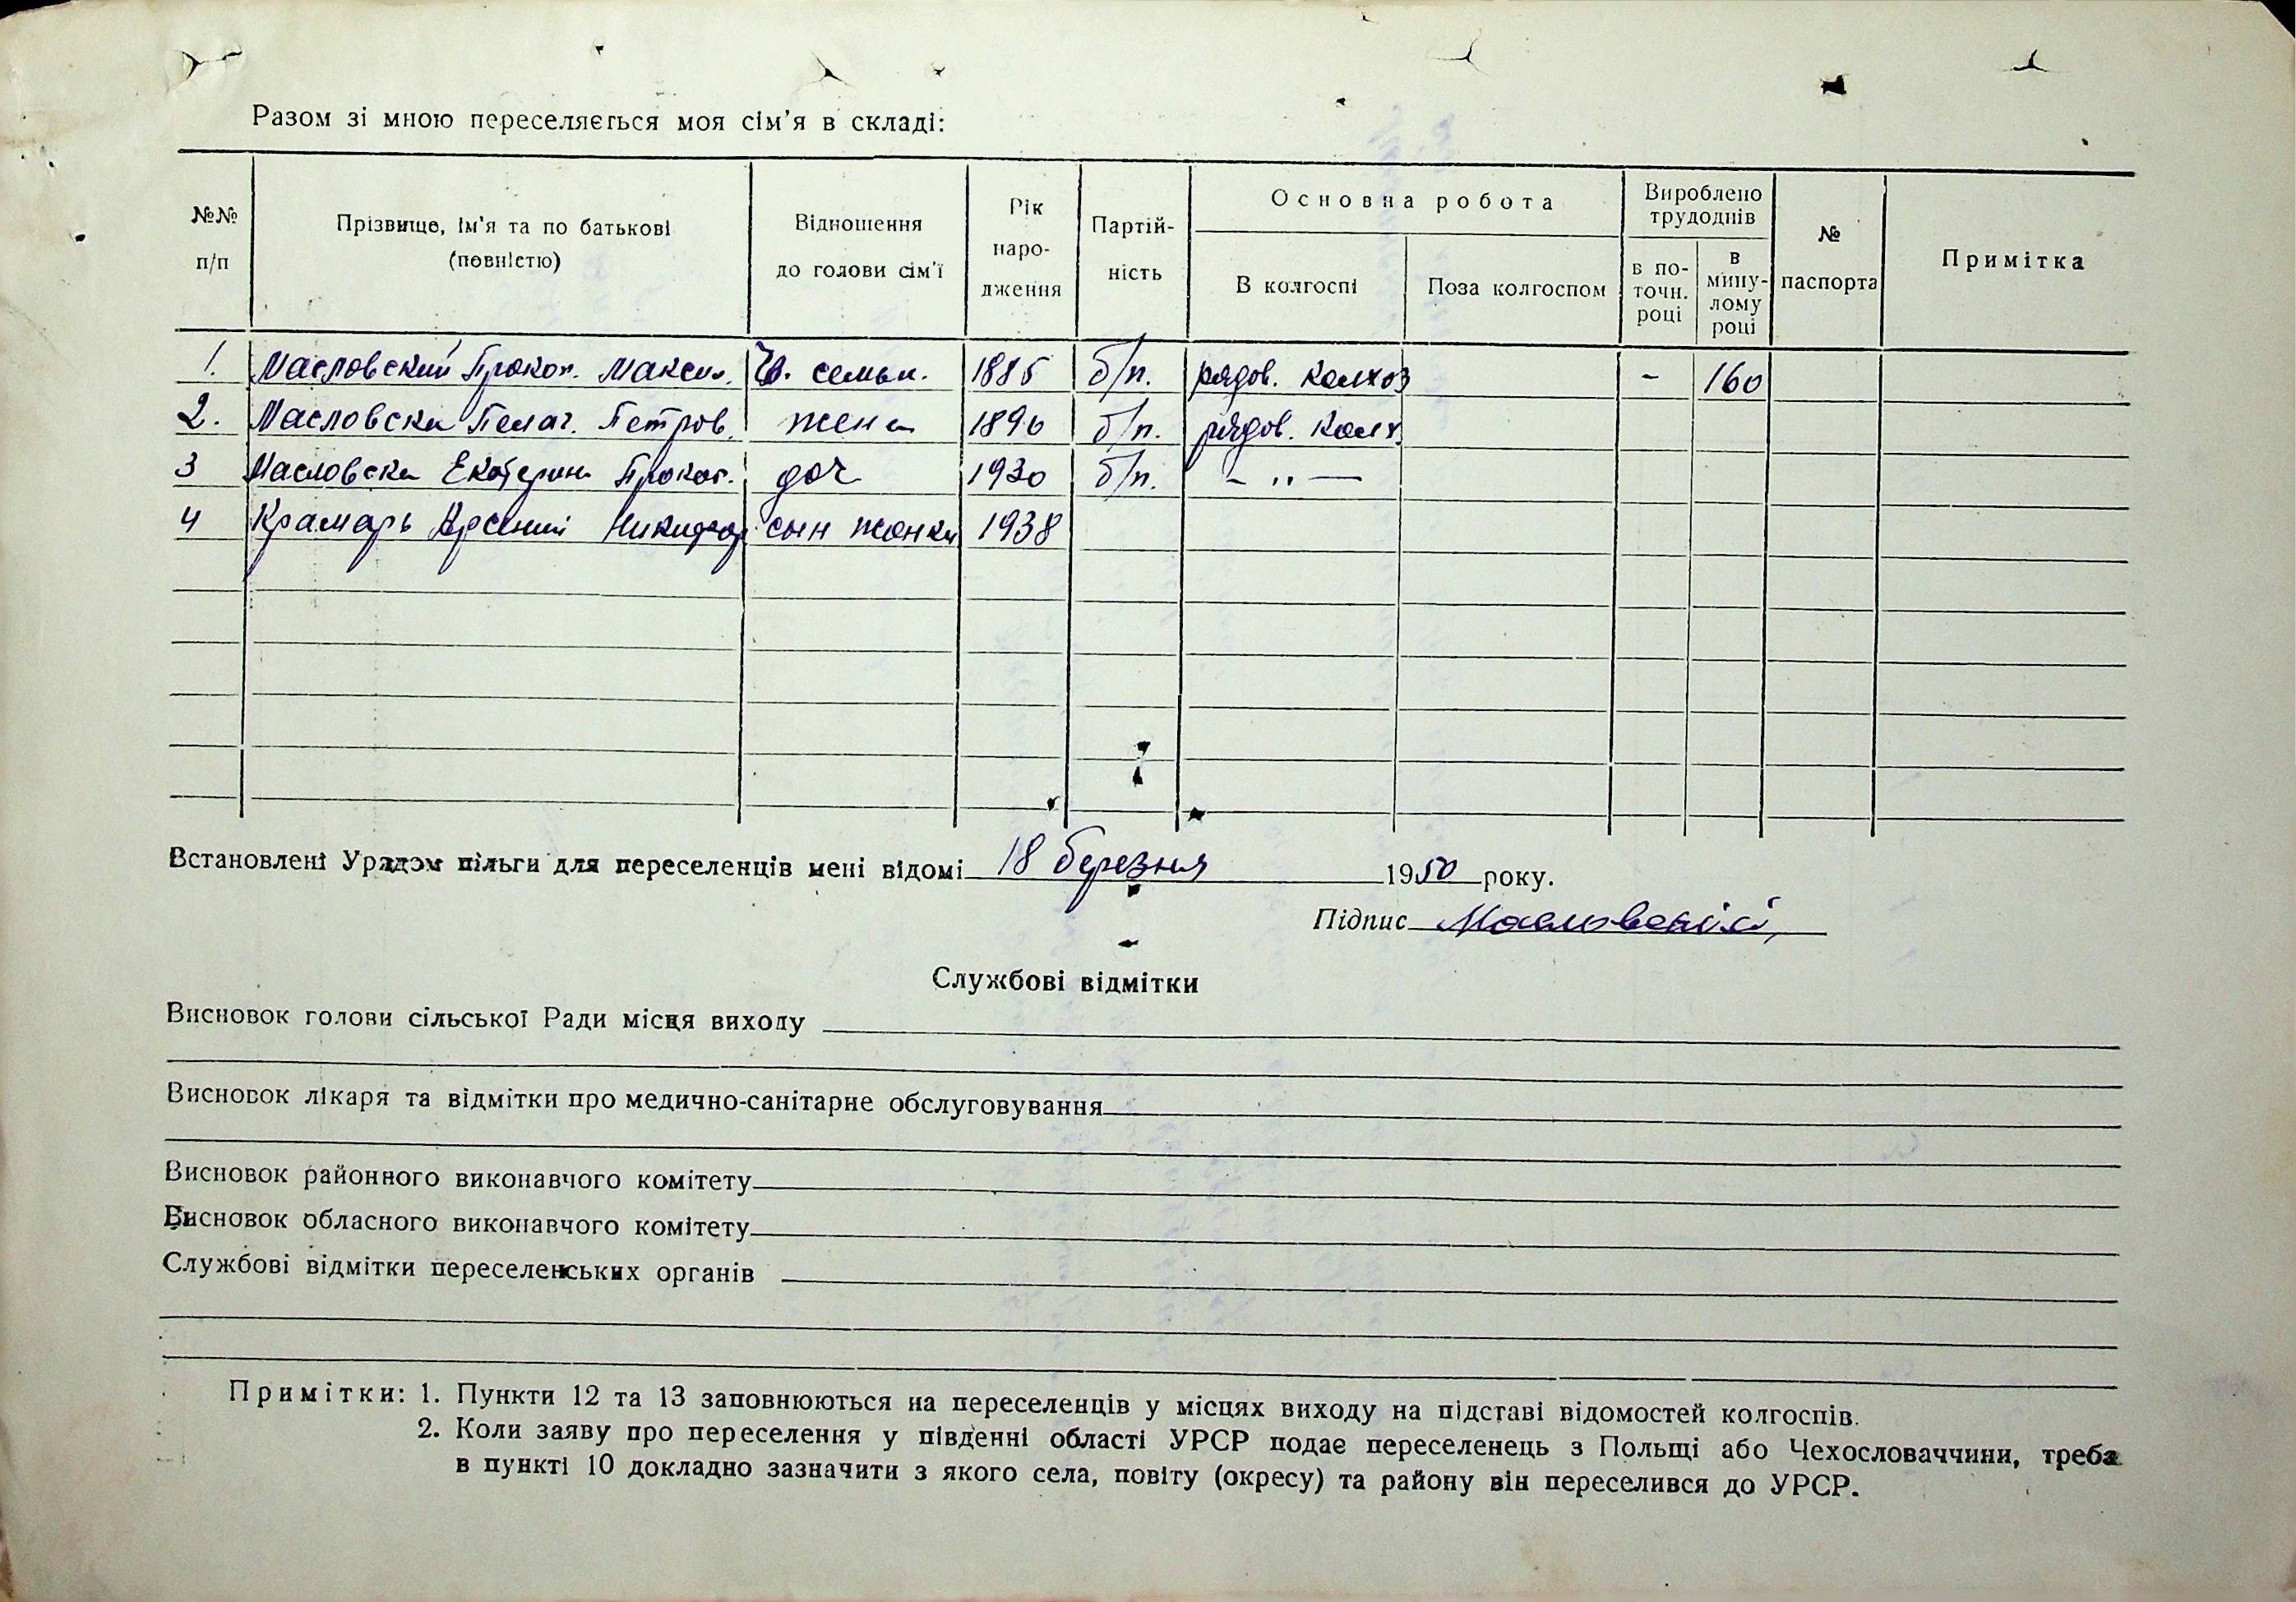 Разом зі мною переселяється моя сім'я в складі:
№№ п/п
Прізвище, ім'я та по батькові (повністю)
Відношення до голови сім'ї
Рік наро- дження
Партій- ність
Основна робота
В колгоспі
Поза колгоспом
Вироблено трудоднів
в по- точн. році
в мину- лому році
№ паспорта
Примітка
1. Масловский Прокоп. Максим. Гл. семьи. 1885 б/п. рядов. колхоз - 160
2. Масловска Пелаг. Петров. жена 1890 б/п. рядов. колх.
3 Масловска Екатерина Прокоп. доч 1930 б/п. - „ —
4 Крамарь Арсений Никифор. сын жонки 1938
Встановлені Урядом пільги для переселенців мені відомі 18 березня 1950 року.
Підпис Масловский
Службові відмітки
Висновок голови сільської Ради місця виходу
Висновок лікаря та відмітки про медично-санітарне обслуговування
Висновок районного виконавчого комітету
Висновок обласного виконавчого комітету
Службові відмітки переселенських органів
Примітки: 1. Пункти 12 та 13 заповнюються на переселенців у місцях виходу на підставі відомостей колгоспів.
2. Коли заяву про переселення у південні області УРСР подає переселенець з Польщі або Чехословаччини, треба
в пункті 10 докладно зазначити з якого села, повіту (окресу) та району він переселився до УРСР.